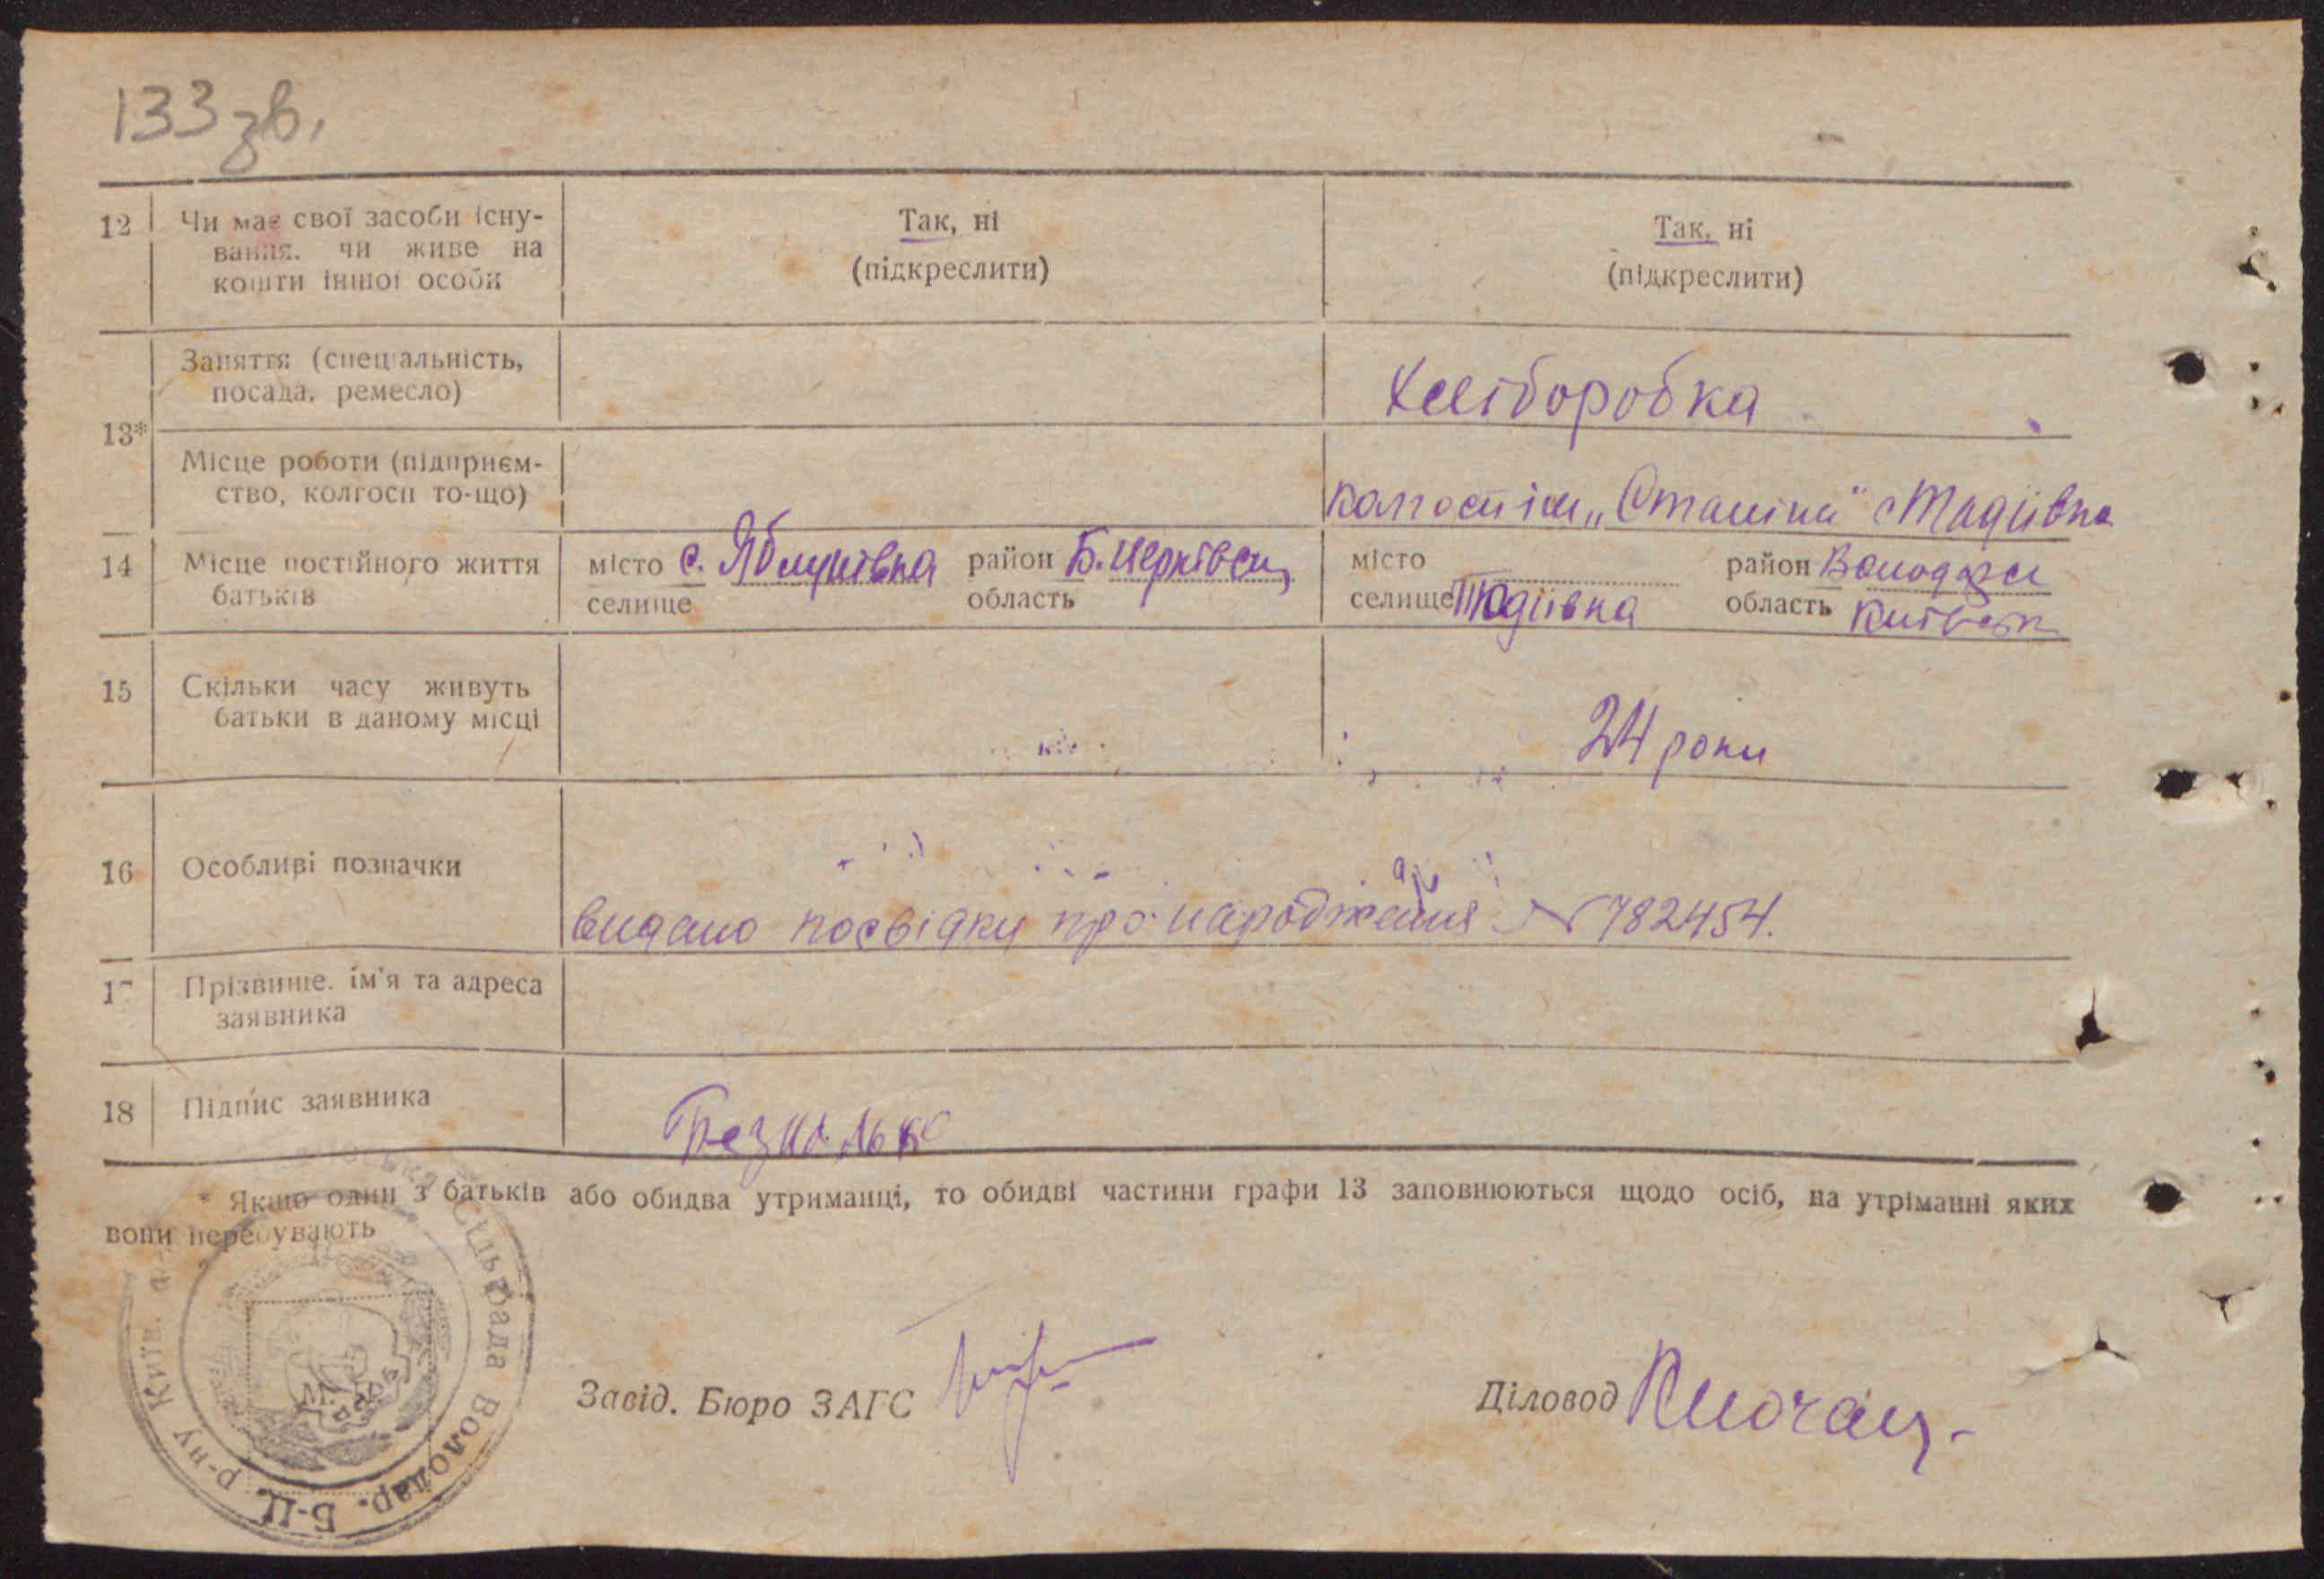 133 зв.
12 Чи має свої засоби існу-
вання, чи живе на
кошти іншої особи
Так, ні
(підкреслити)
Так, ні
(підкреслити)
13*
Заняття (спеціальність,
посада, ремесло)
Хліборобка
Місце роботи (підприєм-
ство, колгосп то-що)
колгоспі ім „Сталіна"
14 Місце постійного життя
батьків
місто с. Яблунівка район Б. Церківськ
селище область
місто район Володарськ
селище область Київськ
15 Скільки часу живуть
батьки в даному місці
24 роки
16 Особливі позначки
видано посвідку про народження № 782454.
17 Прізвище, ім'я та адреса
заявника
18 Підпис заявника
* Якщо один з батьків або обидва утриманці, то обидві частини графи 13 заповнюються щодо осіб, на утріманні яких
вони перебувають
Завід. Бюро ЗАГС
Діловод
Сільрада Володар. Б-Ц. р-ну Київ.